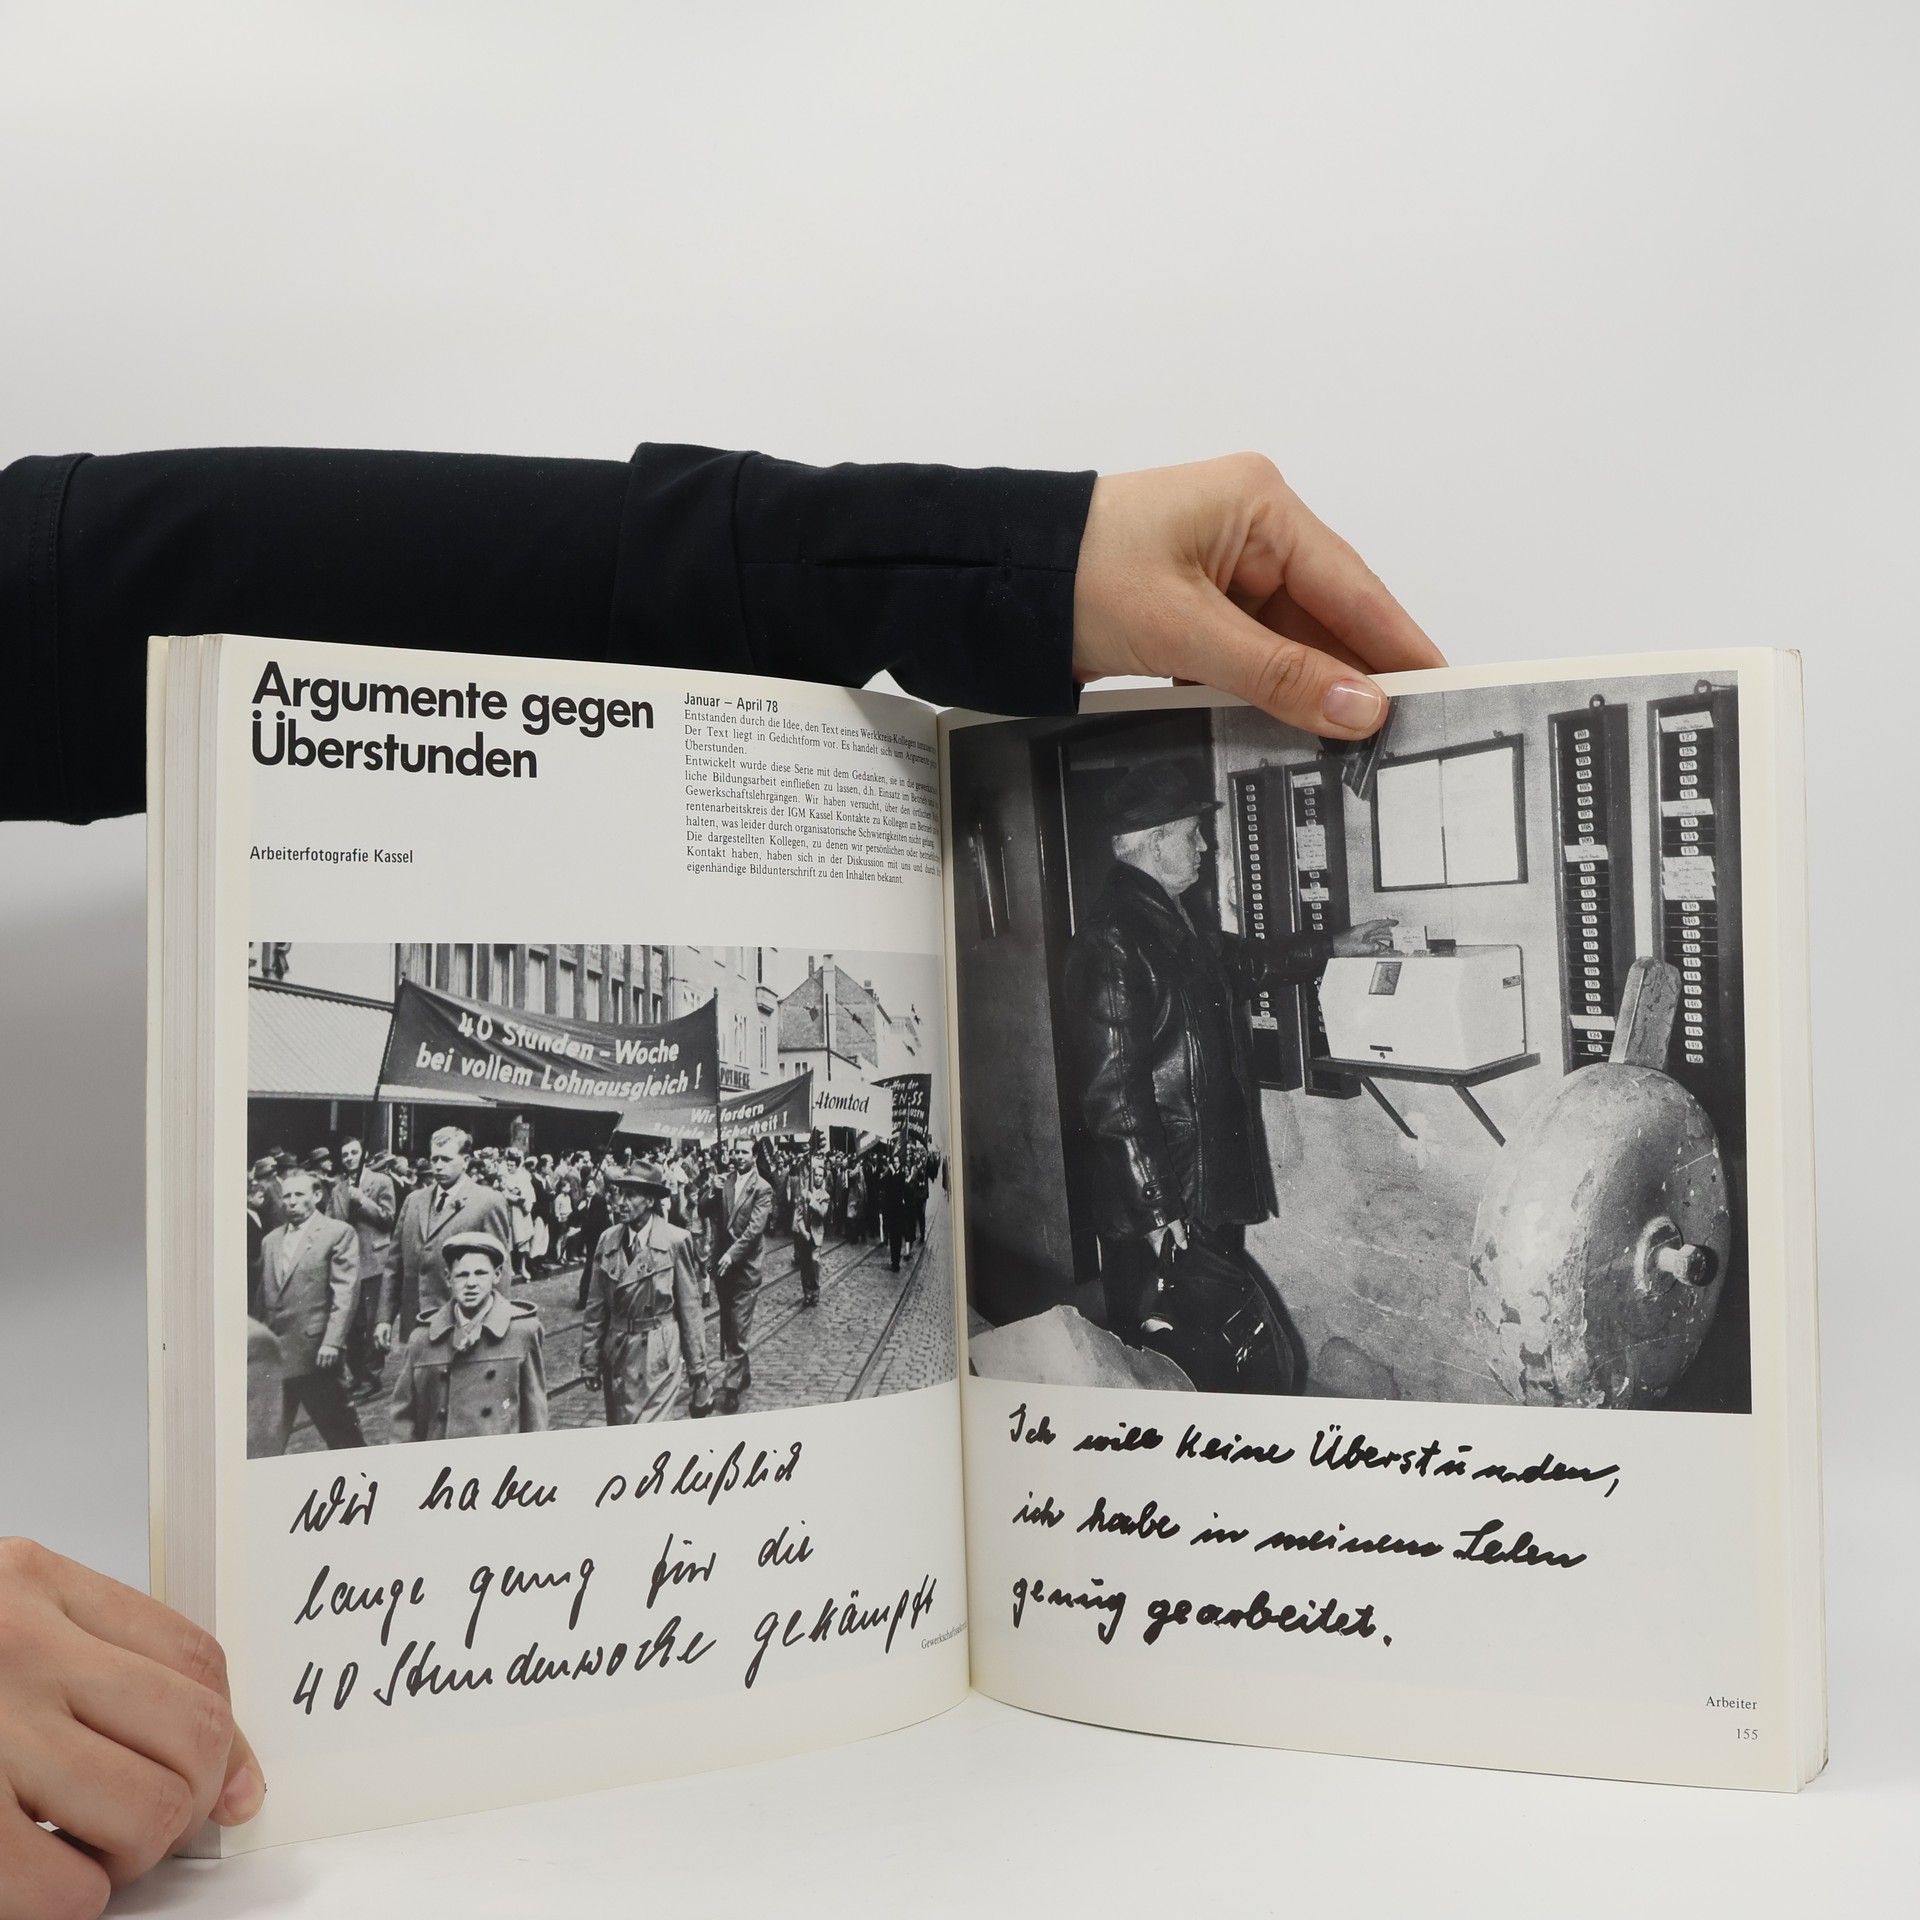 Argumente gegen
Überstunden
Arbeiterfotografie Kassel
Januar – April 78
Entstanden durch die Idee, den Text eines Werkkreis-Kollegen
Der Text liegt in Gedichtform vor. Es handelt sich um Argumente
Überstunden.
Entwickelt wurde diese Serie mit dem Gedanken, sie in die
liche Bildungsarbeit einfließen zu lassen, d.h. Einsatz im Betrieb und
Gewerkschaftslehrgängen. Wir haben versucht, über den
rentenarbeitskreis der IGM Kassel Kontakte zu Kollegen im Betrieb
halten, was leider durch organisatorische Schwierigkeiten nicht gelang.
Die dargestellten Kollegen, zu denen wir persönlichen oder
Kontakt haben, haben sich in der Diskussion mit uns und durch
eigenhändige Bildunterschrift zu den Inhalten bekannt.
40 Stunden-Woche
bei vollem Lohnausgleich!
Wir fordern
Sicherheit!
Atomtod
Wir haben schließlich
lange genug für die
40 Stundenwoche gekämpft
Ich will keine Überstunden,
ich habe in meinem Leben
genug gearbeitet.
Arbeiter
155